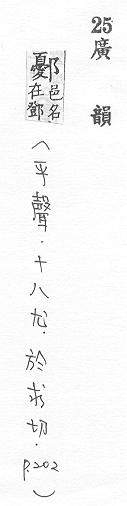 25 廣韻
鄾邑名在鄧
(平聲.十八尤.於求切.P.202)